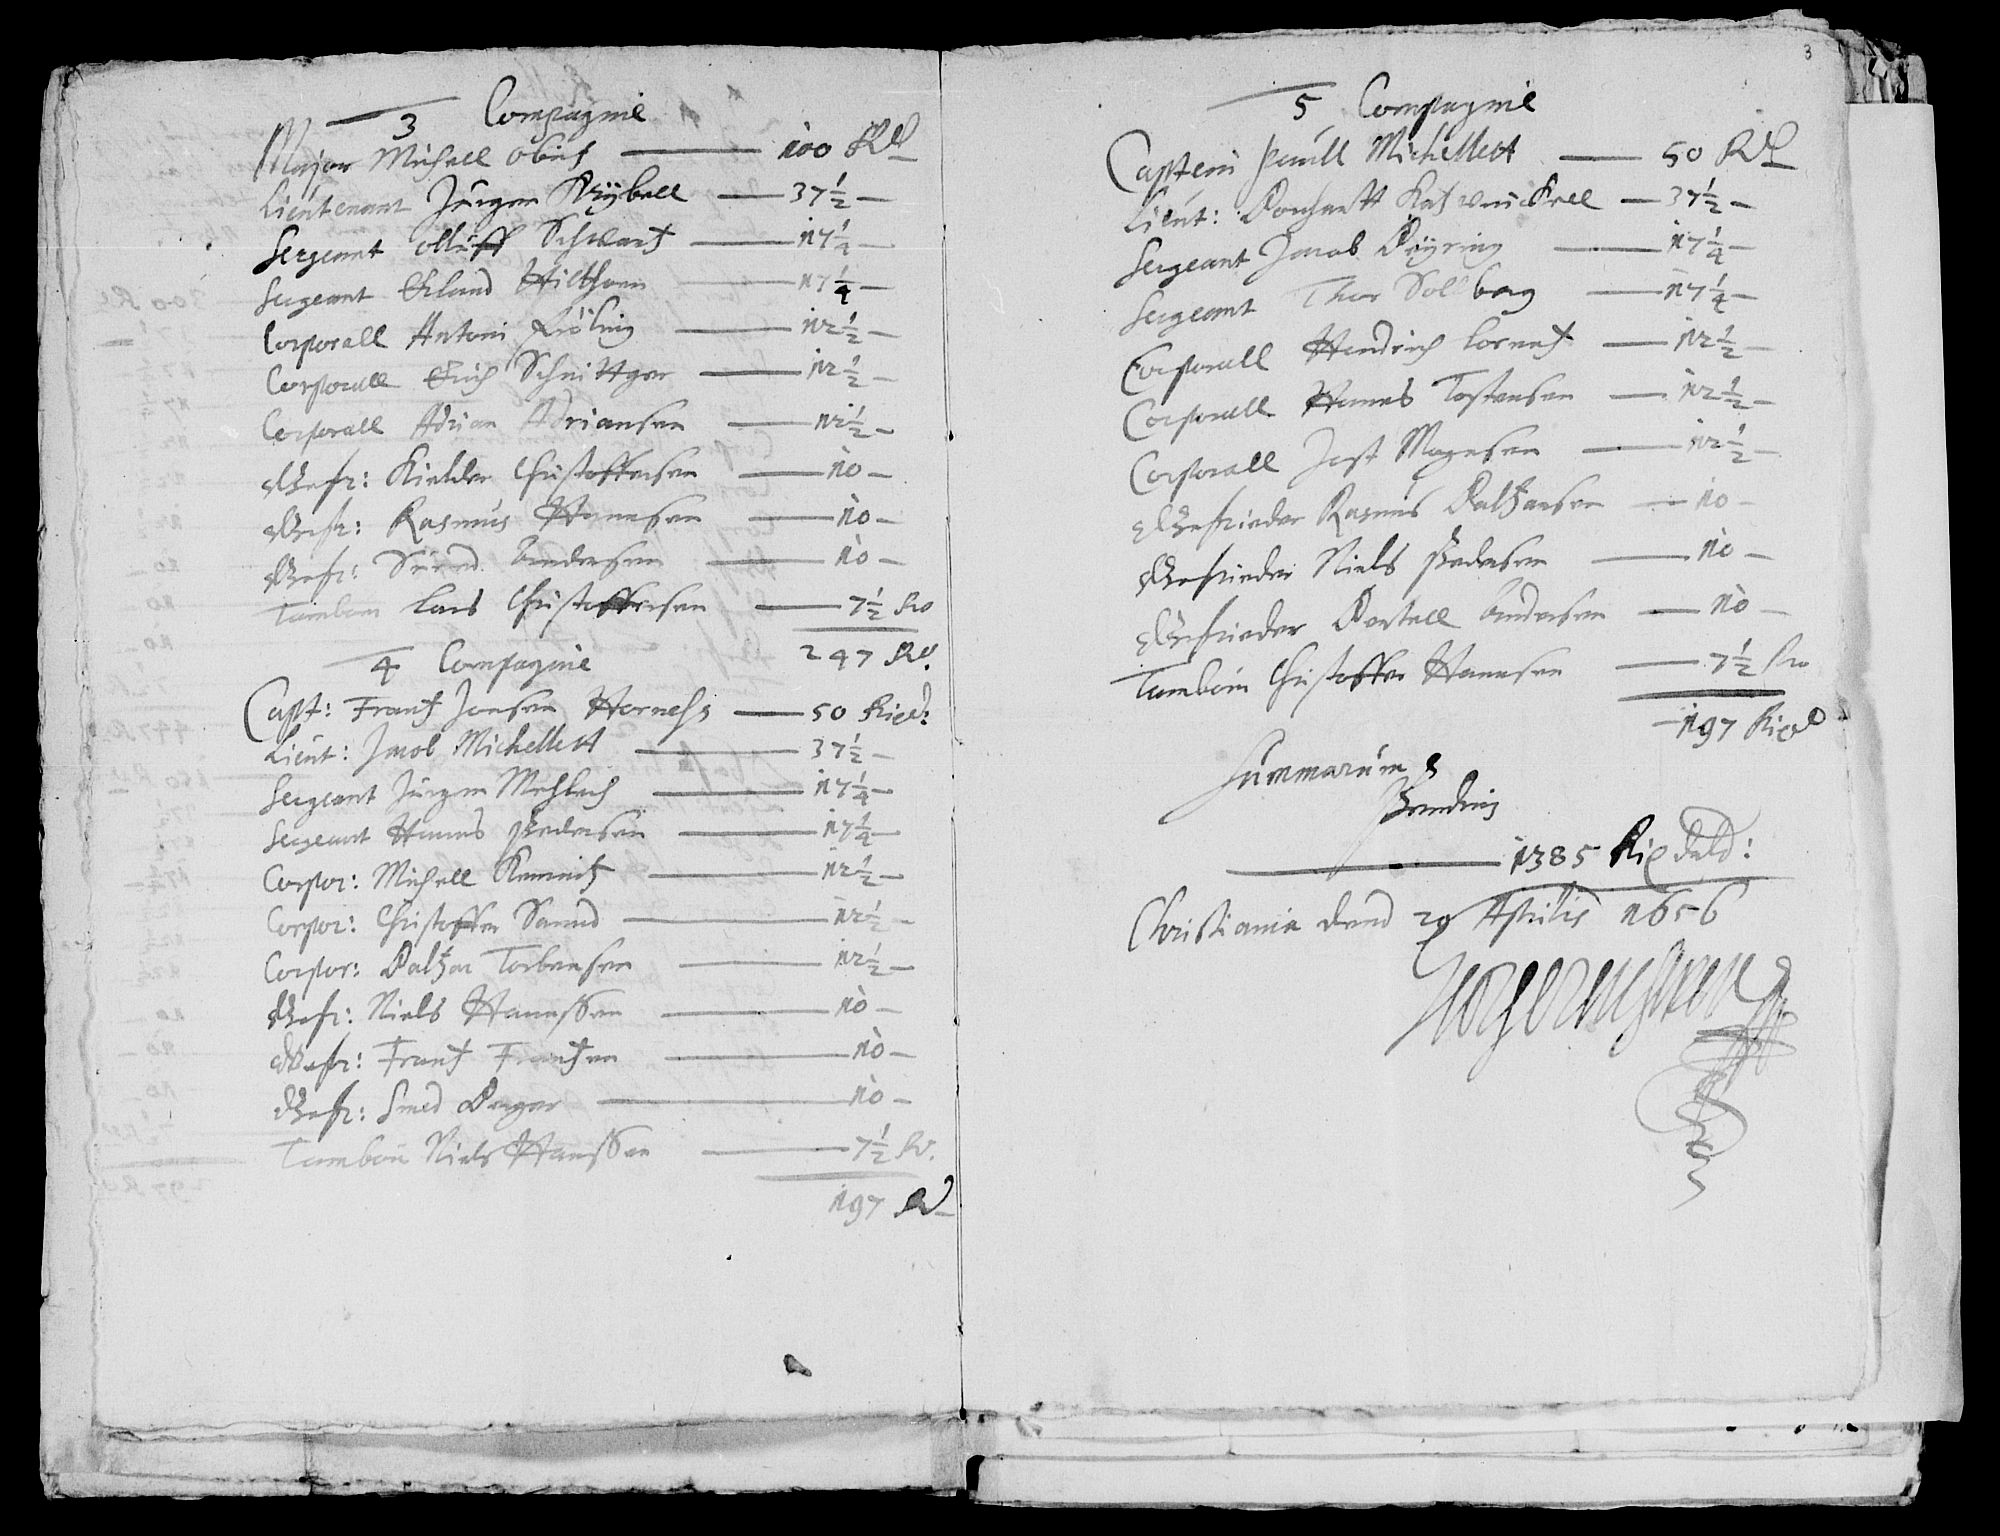 3 Compagnie
Major Michell Obich 100 Rd
Lieutenant Jürgen Reÿbell 37½
Sergeant Oluff Schwartz 17¼
Sergeant Erland Hielthom 17¼
Corporall Antoni Fröling 12½
Corporall Erich Schnittger 12½
Corporall Adrian Adriansen 12½
Gefr: Kielder Christoffersen 10
Gefr: Rasmus Hannsen 10
Gefr: Suend Andersen 10
Tambour Lars Christoffersen 7½ Rd
247 Rd.
4 Compagnie
Capt: Frantz Jonsen Hornes 50 Rixd:
Lieut: Jacob Michellett 37½
Sergeant Jürgen Mehlech 17¼
Sergeant Hanns Pedersen 17¼
Corpor: Michell 12½
Corpor: Christoffer Samud 12½
Corpor: Baltzar Torbensen 12½
Gefr: Niels Hannssen 10
Gefr: Frantz Frantzen 10
Gefr: Smed 10
Tambour Niels Hanssen 7½ Rd.
197 Rd
3
5 Compagnie
Captein Paull Michellett 50 Rd
Lieut: Ronhartt 37½
Sergeant Jacob Deÿring 17¼
Sergeant Thor Sollberg 17¼
Corporall Hendrich Lorentz 12½
Corporall Hanns Tostensen 12½
Corporall Jost Mogensen 12½
Gefrieder Rasmus Baltzarsen 10
Gefrieder Niels Pedersen 10
Gefrieder Bertell Andersen 10
Tambour Christoffer Hannsen 7½ Rd
197 Rixd
Summarum
1385 Rix dald:
Christiania dend 29 Aprilis 1656